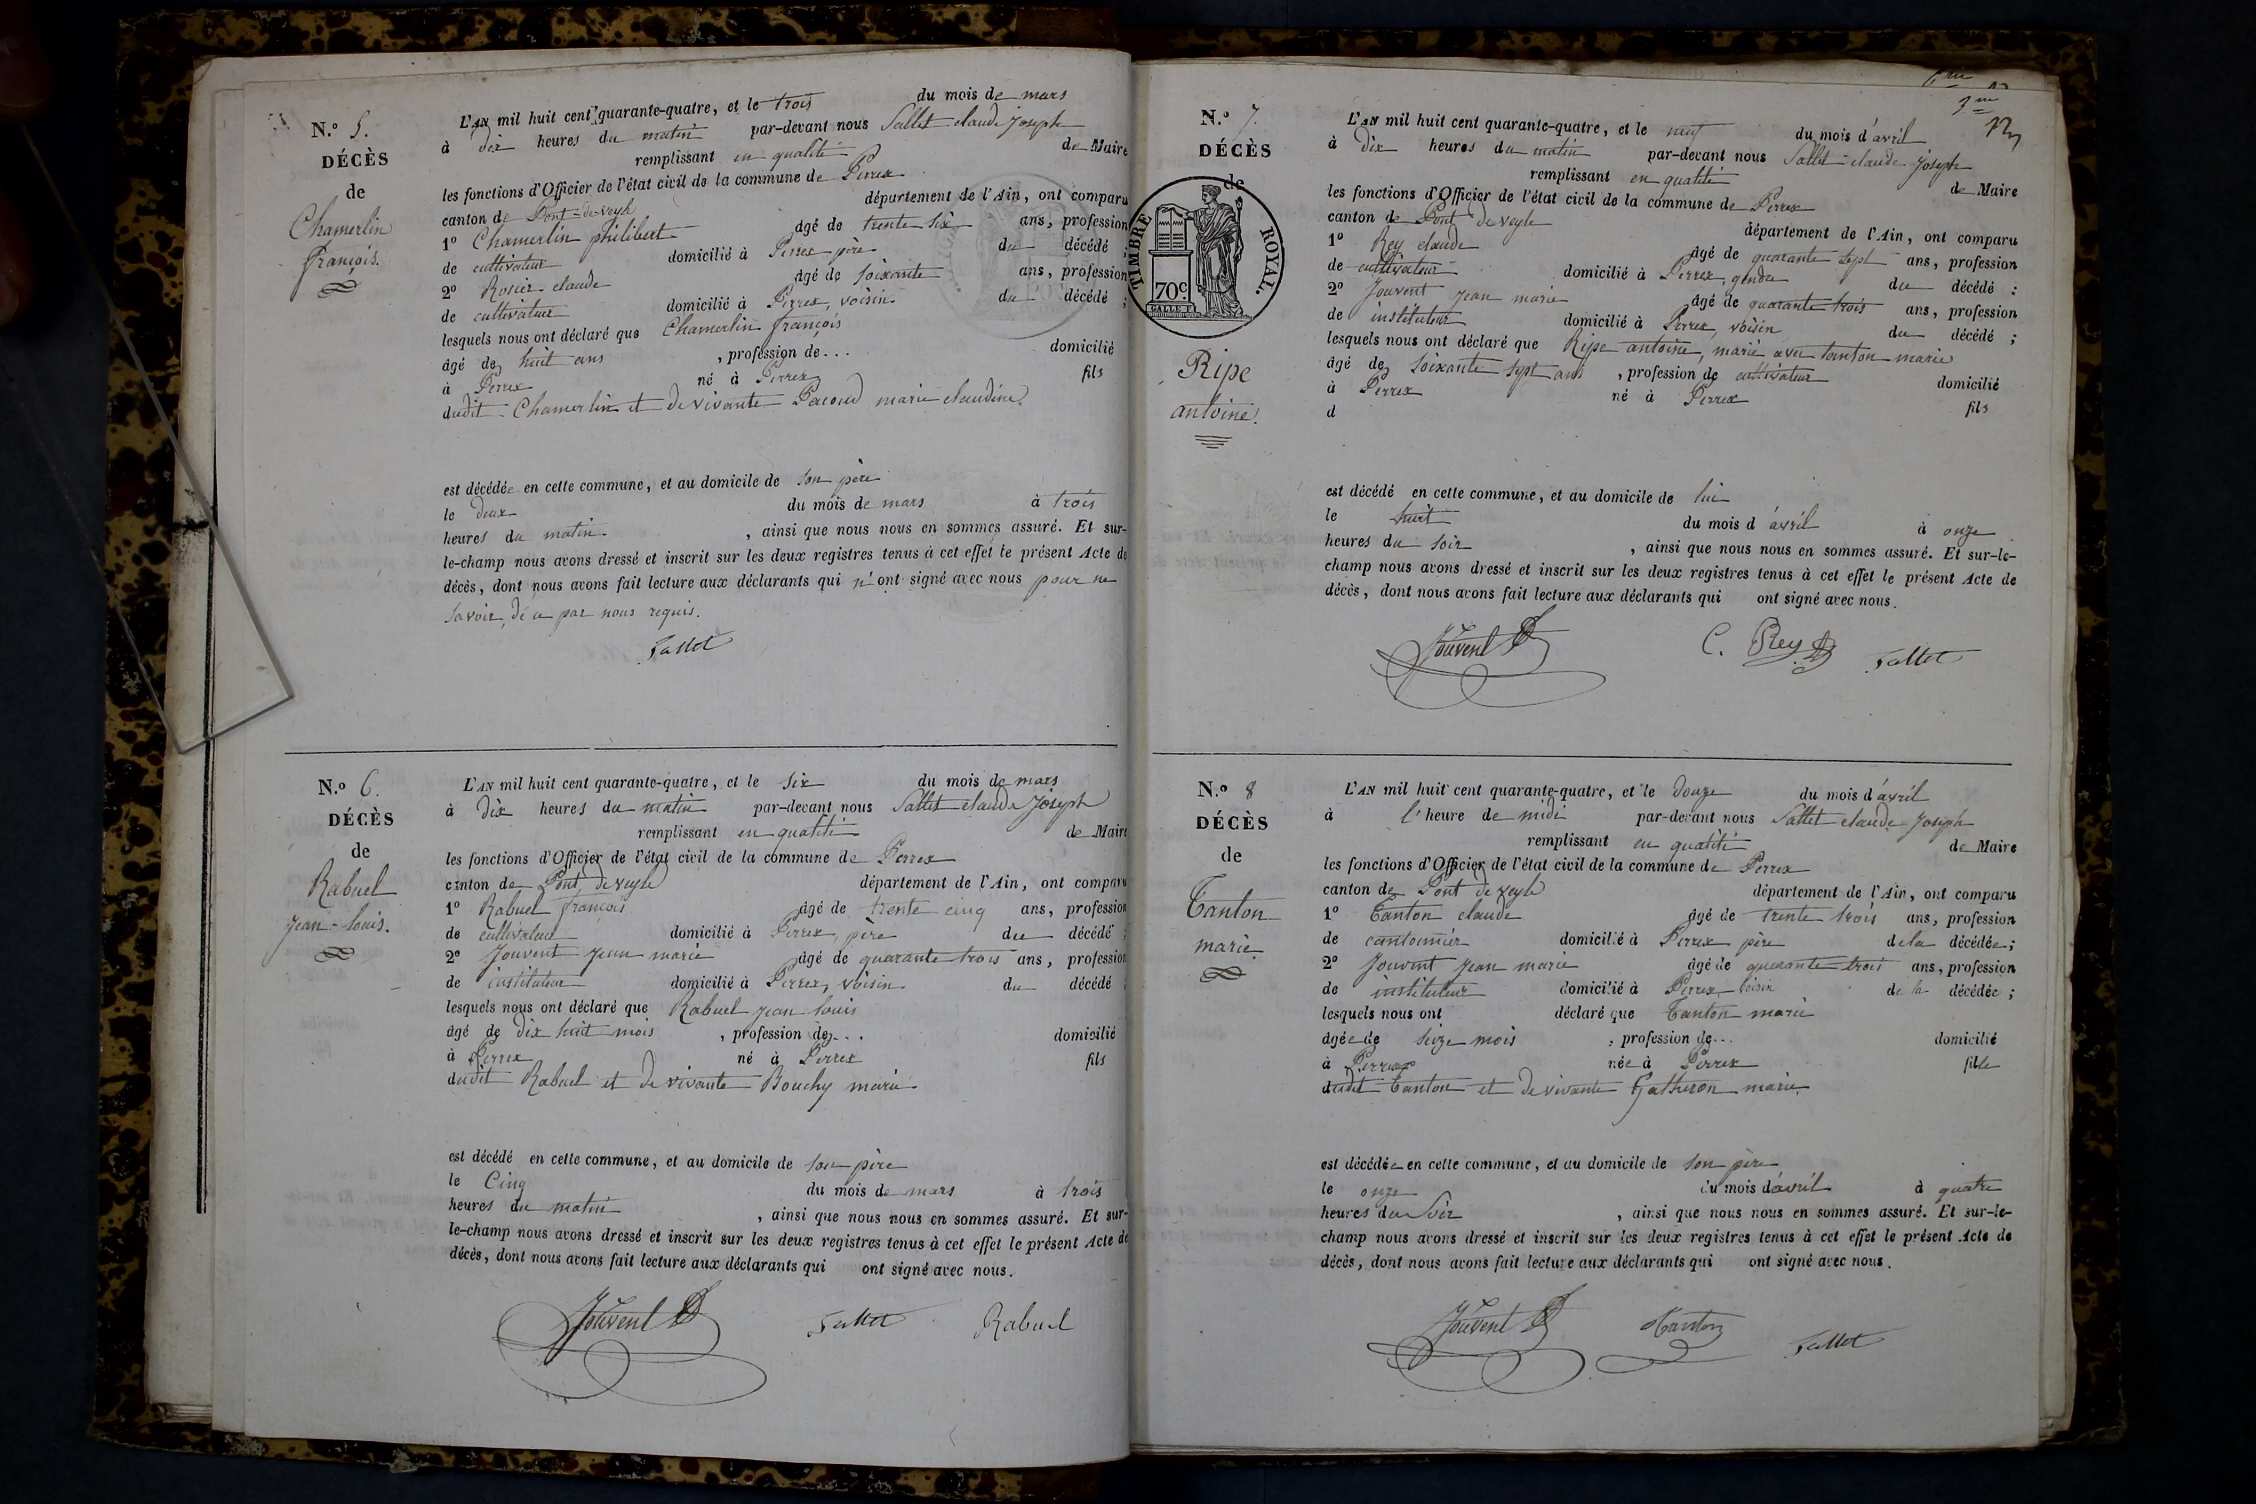 N.o 5.
DÉCÈS
de
Chamerlin
françois.
L'AN mil huit cent quarante-quatre, et le trois du mois de mars
à dix heures du matin par-devant nous Sallet claude Joseph
remplissant en qualité de Maire
les fonctions d'Officier de l'état civil de la commune de Perrex
canton de Pont-de-veyle département de l'Ain, ont comparu
1o Chamerlin philibert agé de trente six ans, profession
de cultivateur domicilié à Perrex père du décédé
2o Rosier claude agé de soixante ans, profession
de cultivateur domicilié à Perrex, voisin du décédé ;
lesquels nous ont déclaré que Chamerlin françois
âgé de huit ans , profession de... domicilié
à Perrex né à Perrex fils
dudit Chamerlin et de vivante Pacoud marie claudine.
est décédée en cette commune, et au domicile de son père
le deux du mois de mars à trois
heures du matin , ainsi que nous nous en sommes assuré. Et sur-
le-champ nous avons dressé et inscrit sur les deux registres tenus à cet effet le présent Acte de
décès, dont nous avons fait lecture aux déclarants qui n'ont signé avec nous pour ne
savoir, de ce par nous requis.
Sallet
N.o 6.
DÉCÈS
de
Rabuel
jean-louis.
L'AN mil huit cent quarante-quatre, et le six du mois de mars
à dix heures du matin par-devant nous Sallet claude Joseph
remplissant en qualité de Maire
les fonctions d'Officier de l'état civil de la commune de Perrex
canton de Pont de veyle département de l'Ain, ont comparu
1o Rabuel françois âgé de trente cinq ans, profession
de cultivateur domicilié à Perrex, père du décédé ;
2o Jouvent jean marie âgé de quarante trois ans, profession
de instituteur domicilié à Perrex, voisin du décédé ;
lesquels nous ont déclaré que Rabuel jean louis
âgé de dix huit mois , profession de... domicilié
à Perrex né à Perrex fils
dudit Rabuel et de vivante Bouchy marie
est décédé en cette commune, et au domicile de son père
le Cinq du mois de mars à trois
heures du matin , ainsi que nous nous en sommes assuré. Et sur-
le-champ nous avons dressé et inscrit sur les deux registres tenus à cet effet le présent Acte de
décès, dont nous avons fait lecture aux déclarants qui ont signé avec nous.
Jouvent Sallet Rabuel
N.o 7.
DÉCÈS
de
TIMBRE ROYAL.
70c.
Ripe
antoine.
L'AN mil huit cent quarante-quatre, et le neuf du mois d'avril
à dix heures du matin par-devant nous Sallet claude Joseph
remplissant en qualité de Maire
les fonctions d'Officier de l'état civil de la commune de Perrex
canton de Pont de veyle département de l'Ain, ont comparu
1o Rey claude âgé de quarante sept ans, profession
de cultivateur domicilié à Perrex, gendre du décédé ;
2o Jouvent jean marie âgé de quarante trois ans, profession
de instituteur domicilié à Perrex, voisin du décédé ;
lesquels nous ont déclaré que Ripe antoine, marié avec tanton marie
âgé de soixante sept ans , profession de cultivateur domicilié
à Perrex né à Perrex fils
d
est décédé en cette commune, et au domicile de lui
le huit du mois d'avril à onze
heures du soir , ainsi que nous nous en sommes assuré. Et sur-le-
champ nous avons dressé et inscrit sur les deux registres tenus à cet effet le présent Acte de
décès, dont nous avons fait lecture aux déclarants qui ont signé avec nous.
Jouvent C. Rey Sallet
N.o 8
DÉCÈS
de
Tanton
marie.
L'AN mil huit cent quarante-quatre, et le douze du mois d'avril
à l'heure de midi par-devant nous Sallet claude Joseph
remplissant en qualité de Maire
les fonctions d'Officier de l'état civil de la commune de Perrex
canton de Pont de veyle département de l'Ain, ont comparu
1o Tanton claude âgé de trente trois ans, profession
de cantonnier domicilié à Perrex père de la décédée;
2o Jouvent jean marie âgé de quarante trois ans, profession
de instituteur domicilié à Perrex voisin de la décédée ;
lesquels nous ont déclaré que Tanton marie
âgée de seize mois , profession de... domicilié
à Perrex née à Perrex fille
dudit Tanton et de vivante Gatheron marie.
est décédée en cette commune, et au domicile de son père
le onze du mois d'avril à quatre
heures du Soir , ainsi que nous nous en sommes assuré. Et sur-le-
champ nous avons dressé et inscrit sur les deux registres tenus à cet effet le présent Acte de
décès, dont nous avons fait lecture aux déclarants qui ont signé avec nous.
Jouvent Tanton Sallet